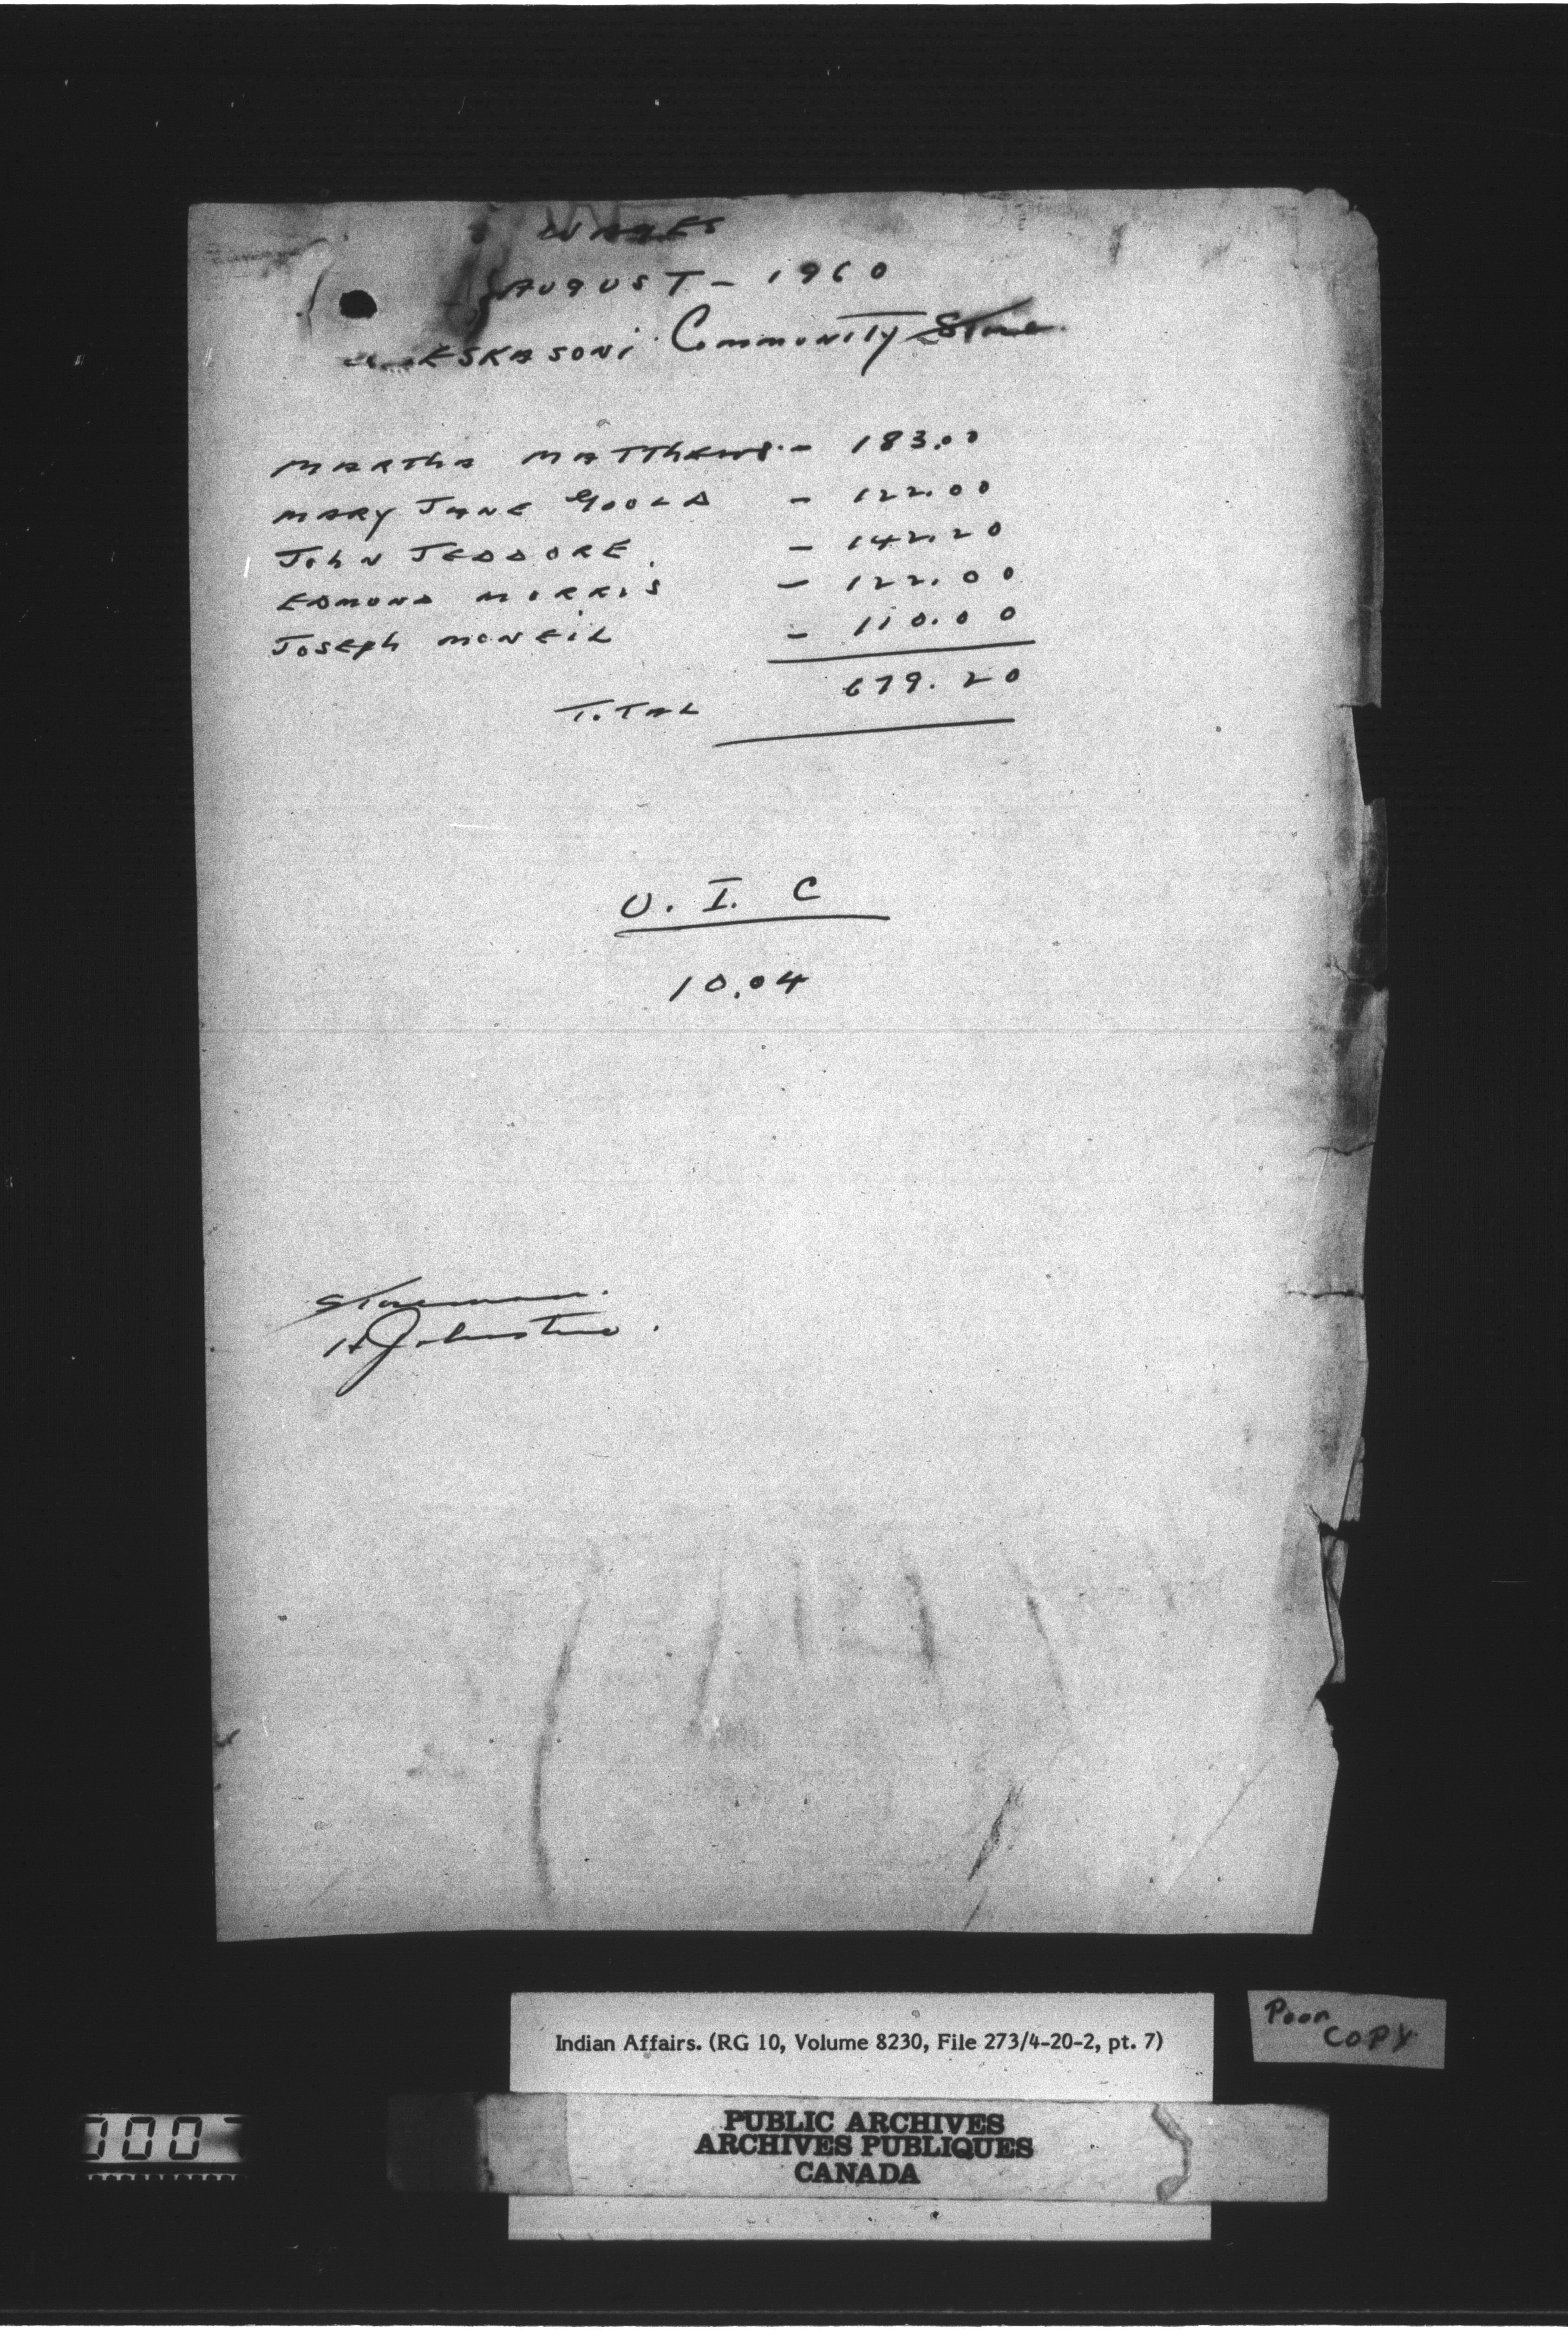 WAGES
AUGUST - 1960
ESKASONI Community Store
MARTHA MATThEWS - 183.00
MARY JANE GOOLD - 122.00
JohN JEDDORE. - 142.20
EDMOND MORRIS - 122.00
JOSEPh MCNEIL - 110.00
679.20
TOTAL
U. I. C
10.04
Storeman.
H Johnstone.
Indian Affairs. (RG 10, Volume 8230, File 273/4-20-2, pt. 7)
Poor
COPY
PUBLIC ARCHIVES
ARCHIVES PUBLIQUES
CANADA